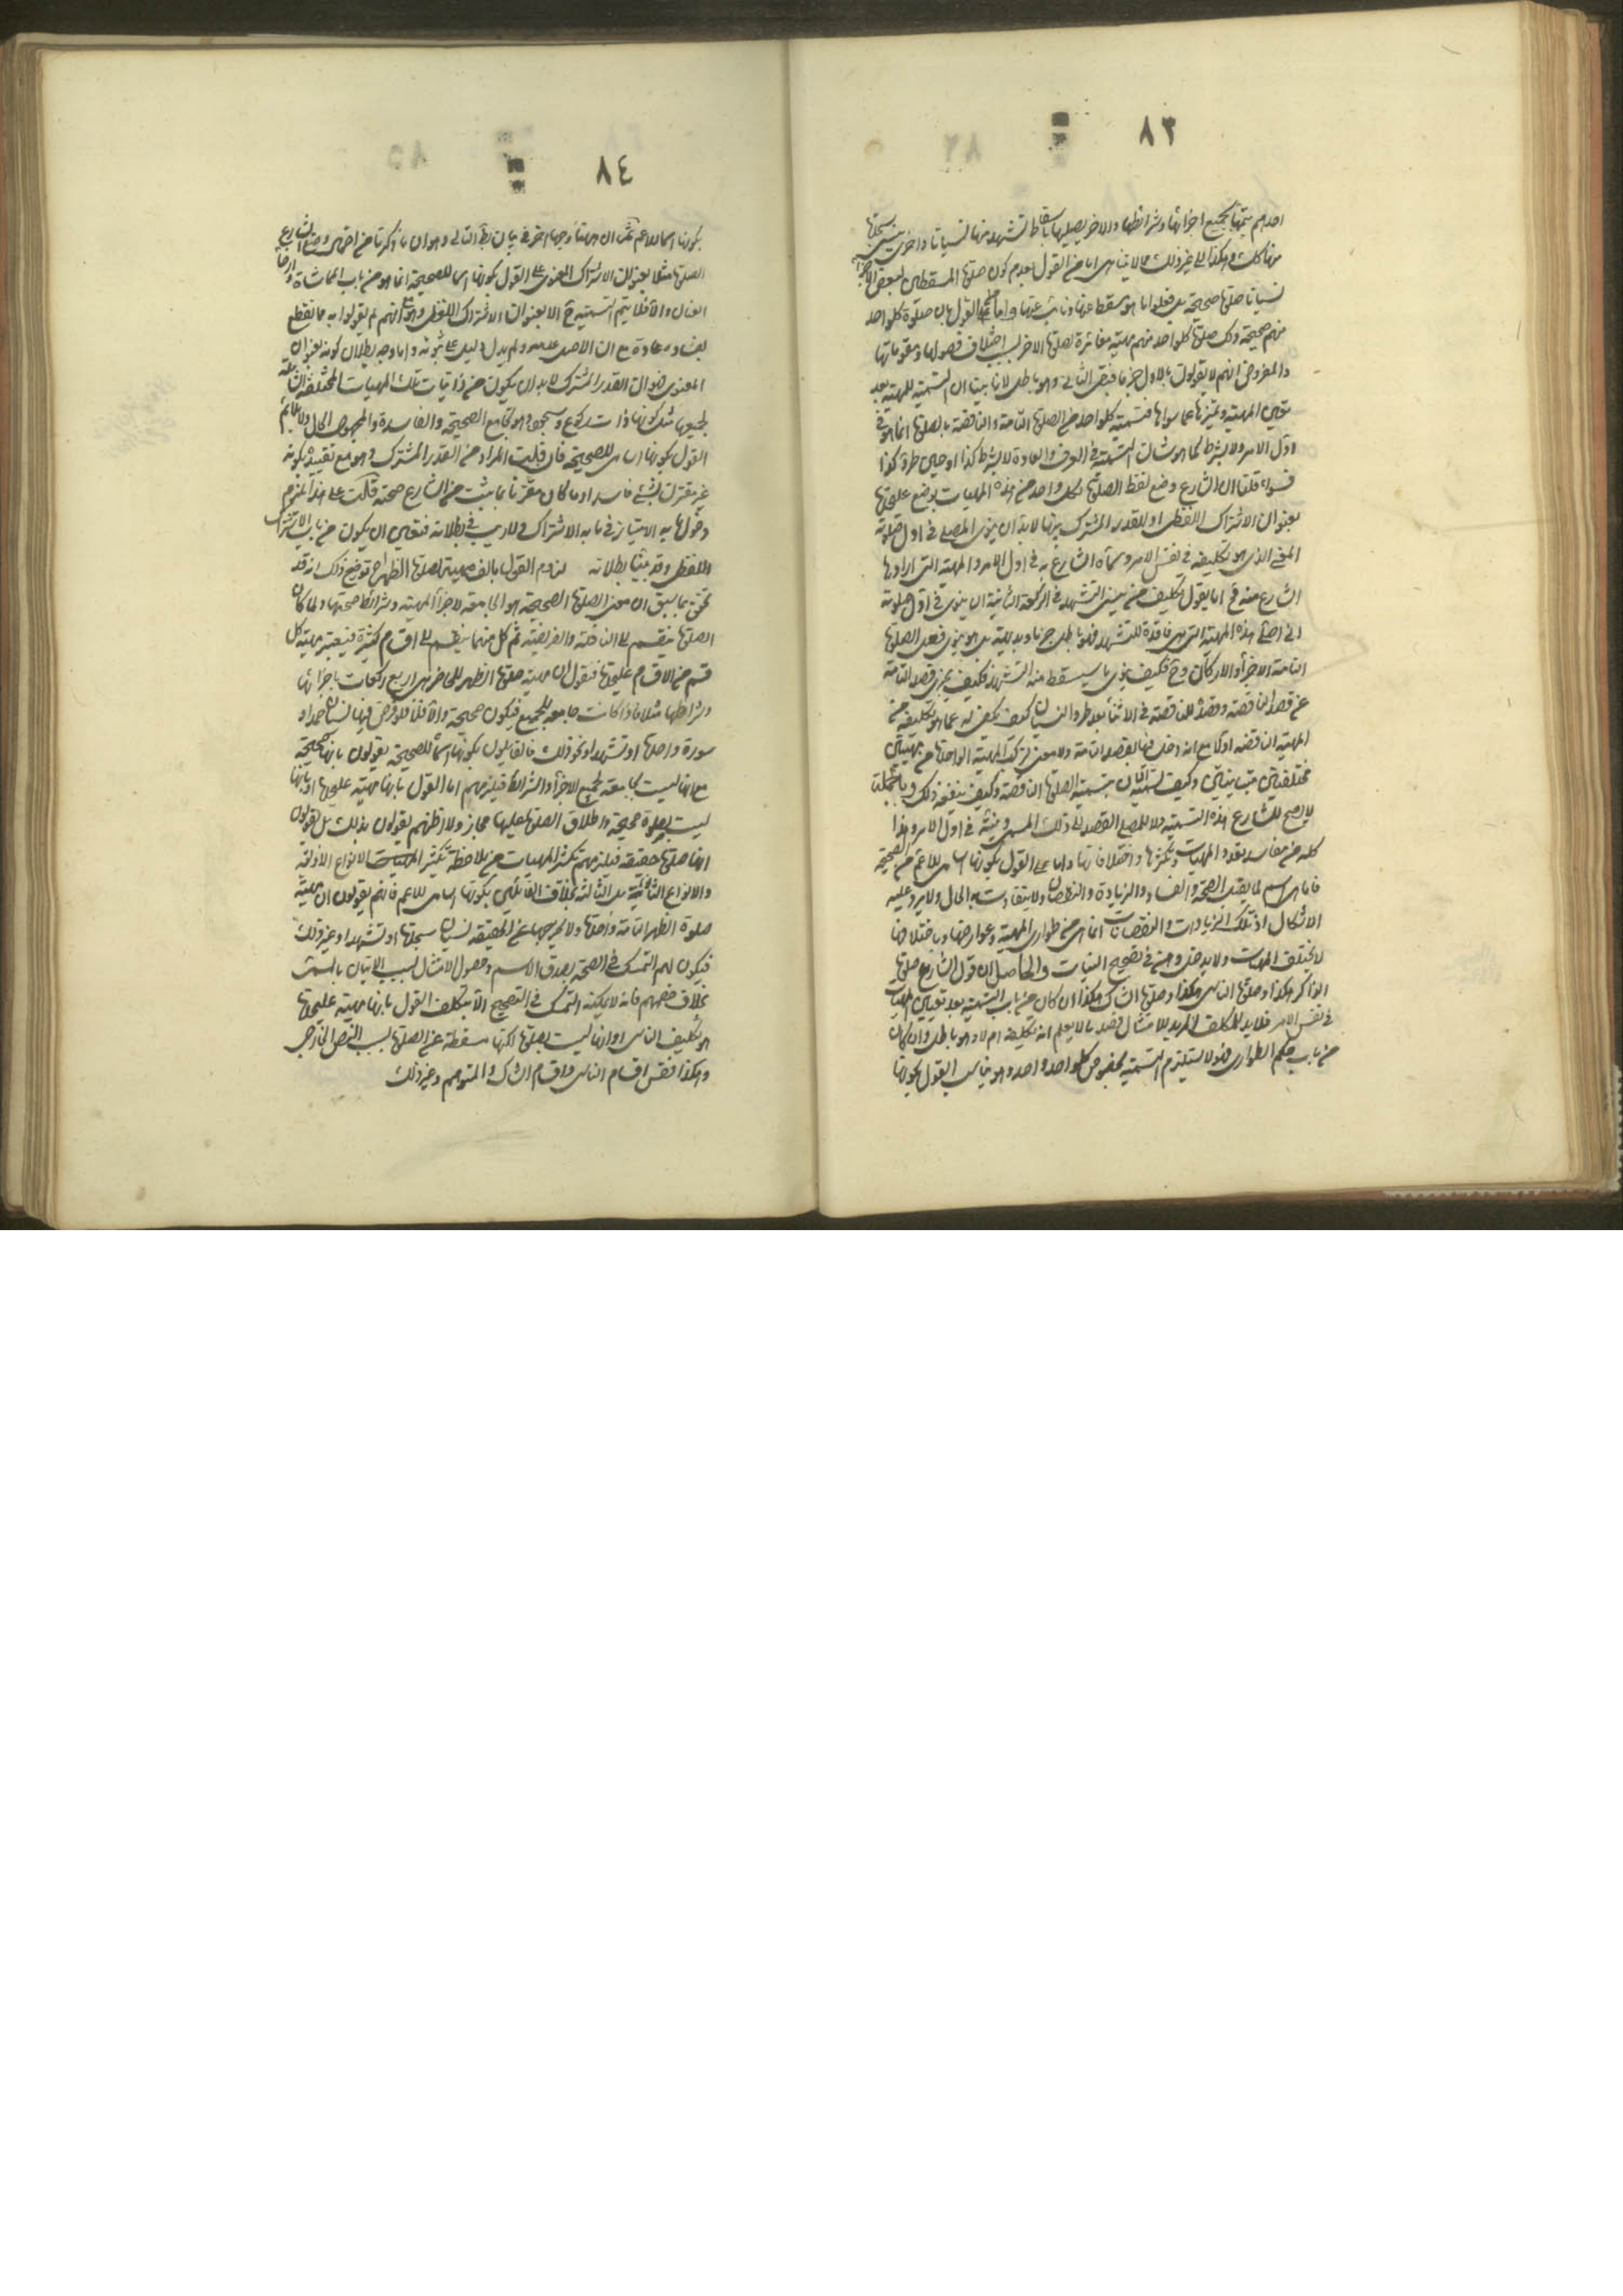 ٨٣
احدهم يتمها بجميع اجزائها وشرائطها والاخر يصليها باسقاط تشهد منها نسيانا واخرى بنسى سجدة
منها كك وهكذا الى غير ذلك لا يناسى اما من القول بعدم كون صلوة المسقطين لبعض الاجزاء
نسيانا صلوة صحيحة بل فعلوا ما هو مسقط عنها ونائب عنها واما القول بان صلوة كلواحد
منهم صحيحة وكك صلوة كلواحد منهم مهية مغائرة لصلوة الاخر لسبب اختلاف فصولها ومقوماتها
والمفروض انهم لا يقولون بالاول جزما فبقى الثانى وهو باطل لانا بينا ان التسمية للمهية بعد
تعيين المهية وتميزها عما سواها فتسمية كلواحد من الصلوة التامة والناقصة بالصلوة انما هو فى
اول الامر ولا بشرط كما هو شان التسمية فى العرف والعادة لا بشرط كذا او حين طرو كذا
فسواء قلنا ان الشارع وضع لفظ الصلوة لكل واحد من هذه المهيات بوضع عليحدة
بعنوان الاشتراك اللفظى او للقدر المشترك بينها لا بد ان ينوى المصلى فى اول صلوته
المعنى الذى هو تكليفه فى نفس الامر وسماه الشارع به فى اول الامر والمهية التى ارادها
الشارع منه فح اما يقول تكليف من نسى التشهد فى الركعة الثانية ان ينوى فى اول صلوته
انى اصلى هذه المهية التى هى فاقدة للتشهد فهو باطل جزما وبديهة بل هو ينوى فعل الصلوة
التامة الاجزاء والاركان وح فكيف ينوى ما سيسقط منه التشهد فكيف يجزى قصد التامة
عن قصد الناقصة وقصده للناقصة فى الاثناء بعد طرو النسيان كيف يكفى له عما هو تكليفه من
المهية الناقصة اولا مع انه دخل فيها بقصد التامة ولا معنى لتركب المهية الواحدة من مهيتين
مختلفتين متباينتين وكيف بتسمية الصلوة الناقصة وكيف ينفعه ذلك وبالجملة
لا يصح للشارع هذه التسمية ولا للمصلى القصد الى ذلك المسمى ونيته فى اول الامر وهذا
كله من مفاسد تعدد المهيات وتكثرها واختلافاتها واما على القول بكونها اسامى للاعم من الصحيحة
فاما هى اسم لما يقبل الصحة والفساد والزيادة والنقصان ولا يتفاوت به الحال ولا يرد عليه
الاشكال اذ تلك الزيادات والنقصانات انما هى من طوارى المهية وعوارضها وباختلافها
لا يختلف المهيات ولا يدخل وهن فى تصحيح النيات والحاصل ان قول الشارع صلوة
الذاكر هكذا وصلوة الناسى هكذا وصلوة الشاك هكذا ان كان من باب التسمية بعد تعيين المهيات
فى نفس الامر فلا بد للمكلف المريد للامتثال قصد ما لا يعلم انه تكليفه ام لا وهو باطل وان كان
من باب حكم الطوارى فهو لا يستلزم التسمية مخصوص كلواحد واحد وهو يناسب القول بكونها
٨٤
بكونها اسما للاعم ثم ان ههنا وجها اخر فى بيان بط الثانى وهو ان ما ذكرنا من احتمال وضع الشارع
الصلوة مثلا بعنوان الاشتراك المعنوى على القول بكونها اسما للصحيحة انما هو من باب المماشاة وارخاء
العنان والا فلا يتم التسمية ح الا بعنوان الاشتراك اللفظى وهو مع انهم لم يقولوا به مما نقطع
بفساده عادة مع ان الاصل عدمه ولم يدل دليل على ثبوته واما وجه بطلان كونه بعنوان
المعنوى فهو ان القدر المشترك لا بد ان يكون من ذاتيات تلك المهيات المختلفة الشاملة
لجميعها مثل كونها ذات ركوع وسجود وهو يجامع الصحيحة والفاسدة والمجهول الحال ولا يلائم
القول بكونها اسامى للصحيحة فان قلت المراد من القدر المشترك هو مع تقييده بكونه
غير مقترن بشئ فاسد او ما كان مقرونا بما يثبت من الشارع صحته قلت على هذا يلزم
دخول ما به الامتياز فى ما به الاشتراك ولا ريب فى بطلانه فتعين ان يكون من باب الاشتراك
اللفظى وقد بينا بطلانه لزوم القول بالف مهية لصلوة الظهر اح توضيح ذلك انه قد
تحقق بما سبق ان معنى الصلوة الصحيحة هو الجامعة لاجزاء المهية وشرائط صحتها ولما كان
الصلوة ينقسم الى النافلة والفريضة ثم كل منهما ينقسم الى اقسام كثيرة فيعتبر مهية كل
قسم من الاقسام عليحدة فنقول ان مهية صلوة الظهر للحاضر هى اربع ركعات باجزائها
وشرائطها مثلا فاذا كانت جامعة للجميع فيكون صحيحة والا فلا فلو فرض فيها نسيان حمد او
سورة واحدة او تشهد او نحو ذلك فالقايلون بكونها اسما للصحيحة يقولون بانها صحيحة
مع انها ليست بجامعة لجميع الاجزاء والشرائط فيلزمهم اما القول بانها مهية عليحدة او بانها
ليست بصلوة صحيحة واطلاق الصلوة عليها مجاز ولا اظنهم يقولون بذلك بل يقولون
انها صلوة حقيقة فيلزمهم تكثر المهيات من ملاحظة تكثير المهيات الانواع الاولية
والانواع الثانية بل الثالثة بخلاف القائلين بكونها اسامى للاعم فانهم يقولون ان مهية
صلوة الظهر التامة واحدة ولا يخرجها عن الحقيقة نسيان سجدة او تشهد او غير ذلك
فيكون لهم التمسك فى الصحة بصدق الاسم وحصول الامتثال لسبب الاتيان بالمسمى
بخلاف خصمهم فانه لا يمكنه التمسك فى التصحيح الا بتكلف القول بانها مهية عليحدة
هو تكليف الناسى او انها ليست بصلوة لكنها مسقطة عن الصلوة بسبب النص الخارجى
وهكذا فقس اقسام الناسى واقسام الشاك والمتوهم وغير ذلك